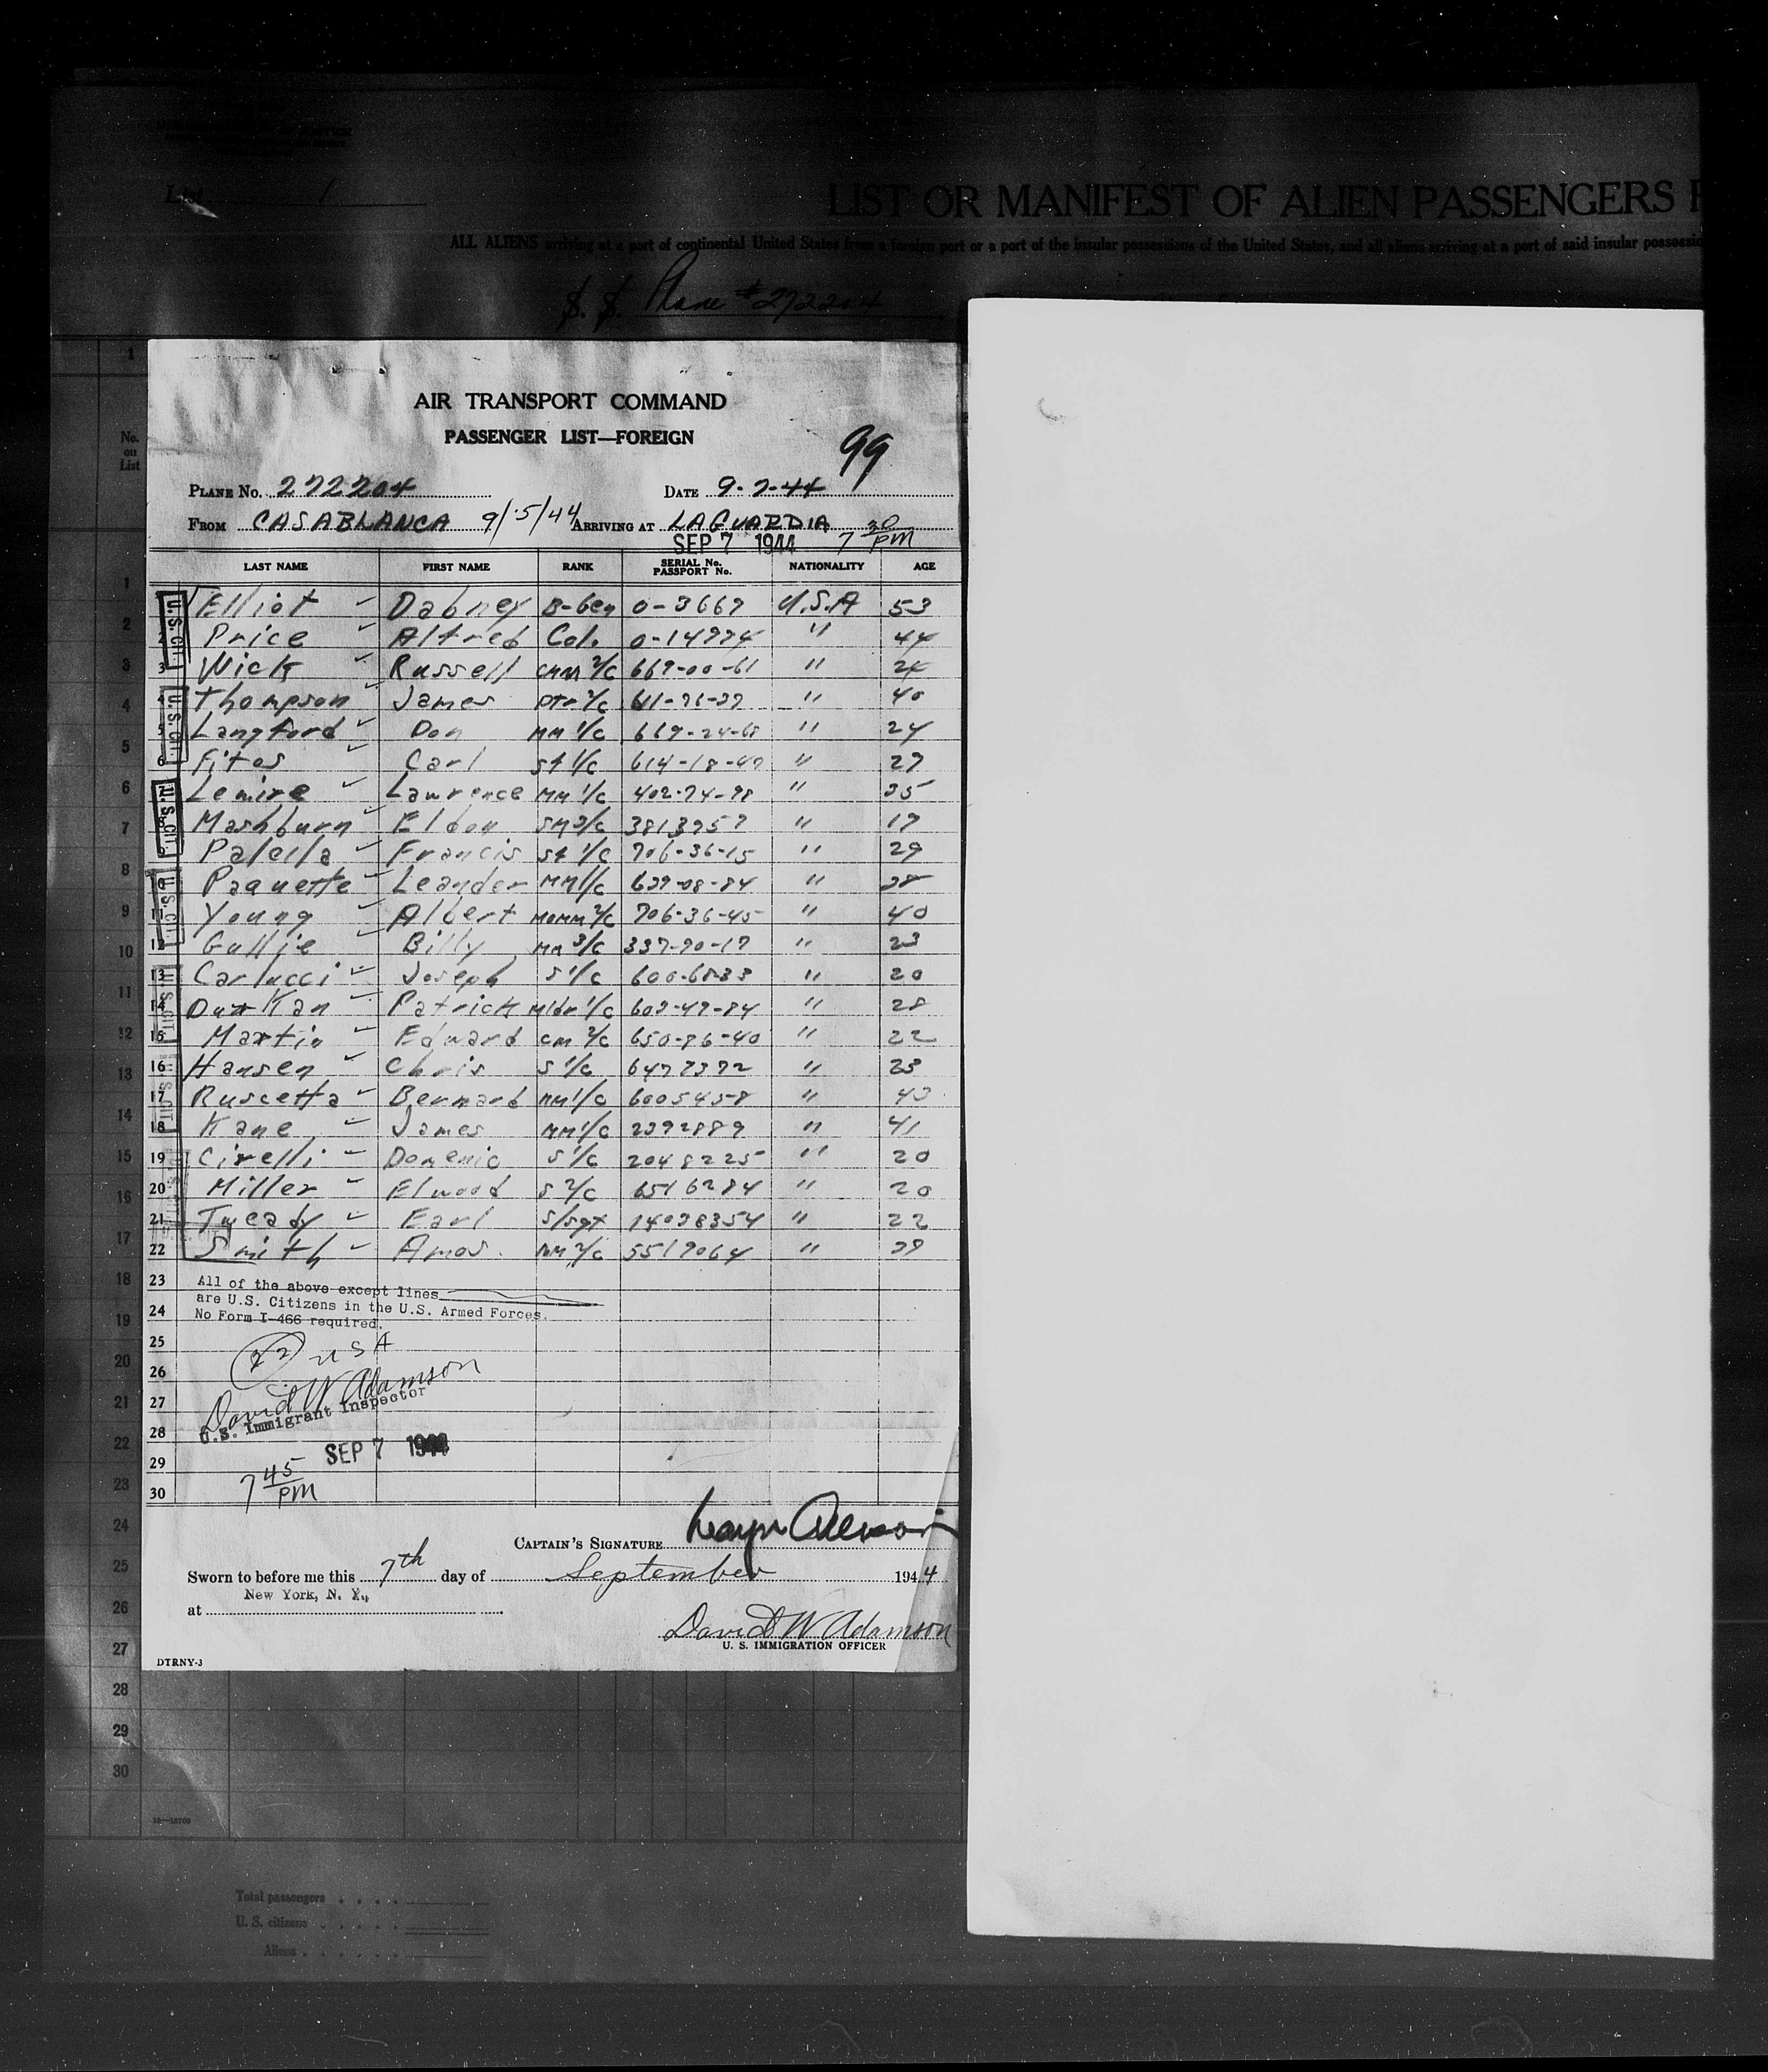 List 1
LIST OR MANIFEST OF ALIEN PASSENGERS
ALL ALIENS arriving at a port of continental United States from a foreign port or a port of the insular possessions of the United States, and all aliens arriving at a port of said insular possessio
S. S. Plane #272204
AIR TRANSPORT COMMAND
PASSENGER LIST—FOREIGN
99
PLANE No. 272204 DATE 9-7-44
FROM CASABLANCA 9/5/44 ARRIVING AT LAGUARDIA 7 30 PM
SEP 7 1944
LAST NAME FIRST NAME RANK SERIAL No. PASSPORT No. NATIONALITY AGE
Elliot Dabney B-Gen 0-3667 U.S.A 53
2 Price Alfred Col. 0-14974 " 44
3 Wick Russell CMM 2/c 667-00-61 " 24
4 Thompson James Ptr 2/c 611-76-37 " 40
5 Langford Don MM 1/c 669-24-68 " 24
6 Fites Carl S1 1/c 614-18-47 " 27
Lemire Lawrence MM 1/c 402-74-98 " 35
Mashburn Eldon SM 3/c 3813957 " 19
Palella Francis S1 1/c 706-36-15 " 29
10 Paquette Leander MM 1/c 639-08-84 " 38
11 Young Albert MOMM 2/c 706-36-45 " 40
12 Billy MM 3/c 337-90-17 " 23
13 Carlucci Joseph S 1/c 600-6833 " 20
14 Patrick 1/c 603-47-84 " 28
15 Martin Edward CM 2/c 650-86-40 " 22
16 Hansen Chris S 1/c 6477372 " 23
17 Ruscetta Bernard MM 1/c 6005458 " 43
18 Kane James MM 1/c 2392889 " 41
19 Cirelli Domenic S 1/c 2048225 " 20
20 Miller Elwood S 2/c 6516284 " 20
21 Tweady Earl S/Sgt 14038354 " 22
22 Smith Amos MM 2/c 5519064 " 39
23 All of the above except lines
are U.S. Citizens in the U.S. Armed Forces.
24 No Form I-466 required.
25 (22) USA
26 David W Adamson
27 U.S. Immigrant Inspector
28 SEP 7 1944
29 7 45 PM
30
CAPTAIN'S SIGNATURE
Sworn to before me this 7th day of September 1944
New York, N. Y.,
at
David W Adamson
U. S. IMMIGRATION OFFICER
DTRNY-3
Total passengers
U. S. citizens
Aliens